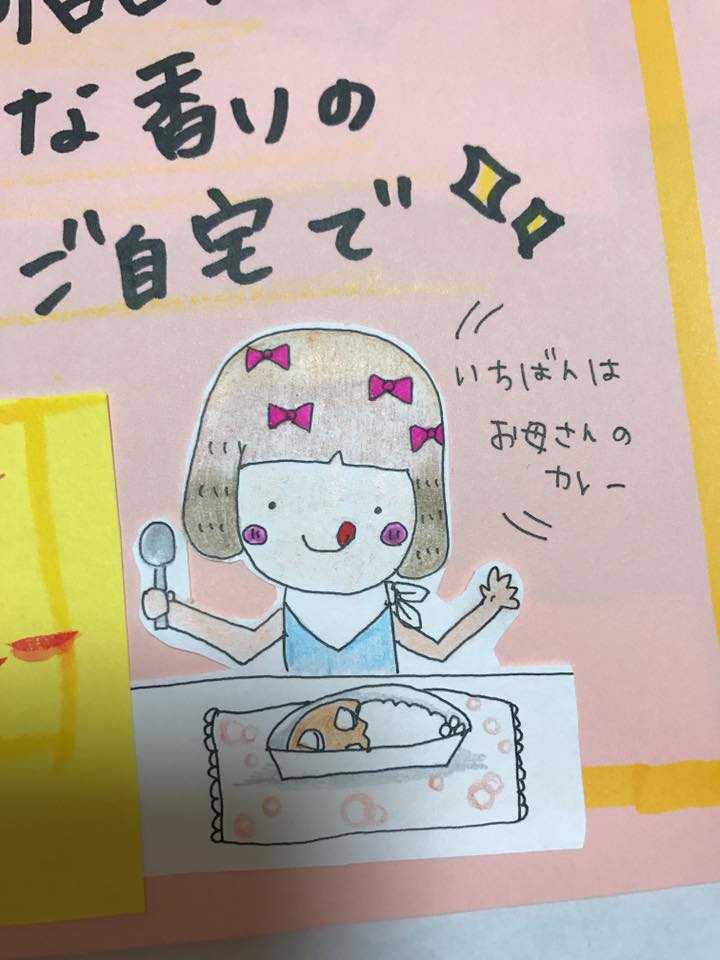 な香りの
ご自宅で
いちばんは
お母さんの
カレー